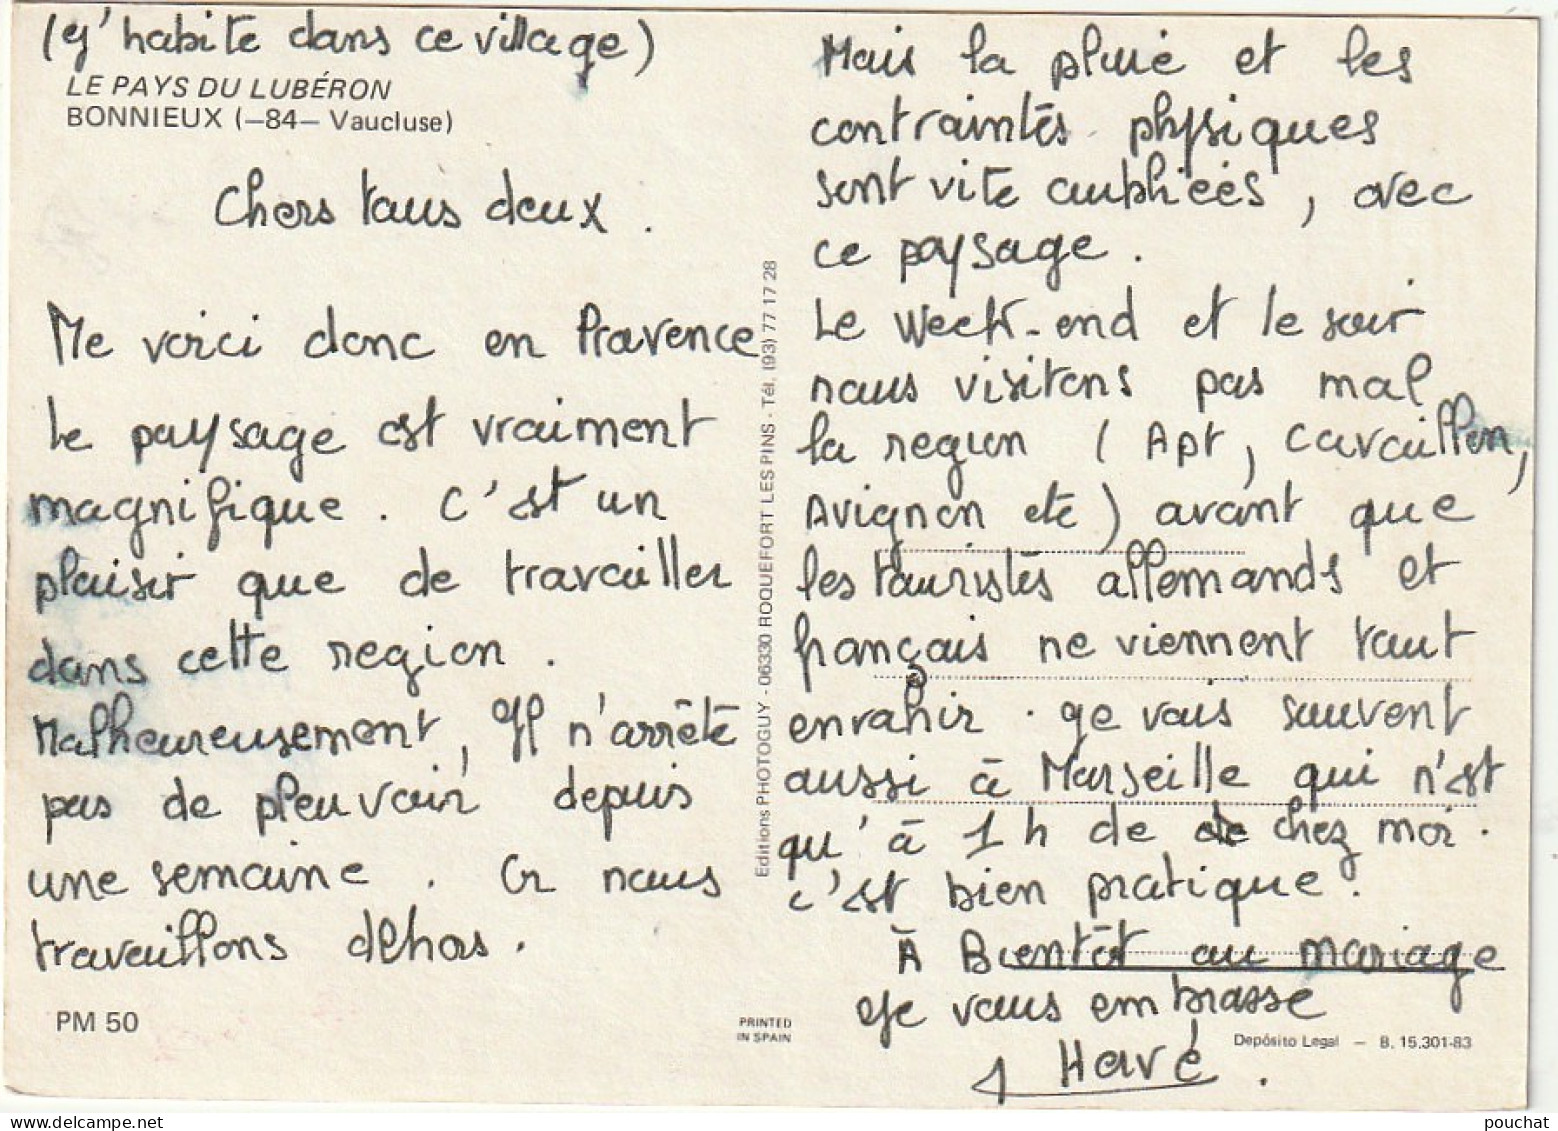 (J'habite dans ce village)
LE PAYS DU LUBÉRON
BONNIEUX (—84— Vaucluse)
Chers tous deux.
Me voici donc en Provence
Le paysage est vraiment
magnifique. C'est un
plaisir que de travailler
dans cette region.
Malheureusement, Il n'arrête
pas de pleuvoir depuis
une semaine. Or nous
travaillons dehors.
PM 50
Editions PHOTOGUY - 06330 ROQUEFORT LES PINS - Tél. (93) 77 17 28
PRINTED
IN SPAIN
Mais la pluie et les
contraintes physiques
sont vite oubliées, avec
ce paysage.
Le Week-end et le soir
nous visitons pas mal
la region (Apt, Cavaillon,
Avignon etc) avant que
les touristes allemands et
français ne viennent tout
envahir. Je vais souvent
aussi à Marseille qui n'est
qu'à 1h de de chez moi.
C'est bien pratique.
À Bientôt au mariage
Je vous embrasse
Hervé.
Depósito Legal — B. 15.301-83
pouchat